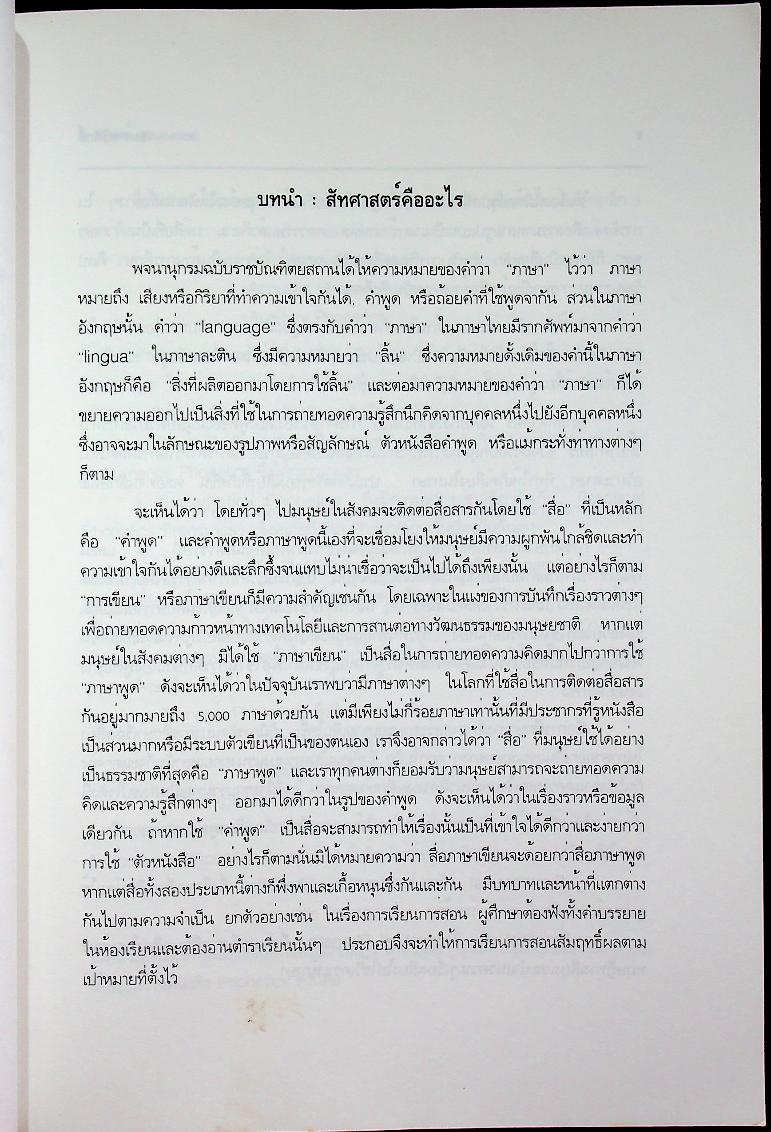 บทนำ : สัทศาสตร์คืออะไร
พจนานุกรมฉบับราชบัณฑิตยสถานได้ให้ความหมายของคำว่า "ภาษา" ไว้ว่า ภาษา
หมายถึง เสียงหรือกิริยาที่ทำความเข้าใจกันได้, คำพูด หรือถ้อยคำที่ใช้พูดจากัน ส่วนในภาษา
อังกฤษนั้น คำว่า "language" ซึ่งตรงกับคำว่า "ภาษา" ในภาษาไทยมีรากศัพท์มาจากคำว่า
"lingua" ในภาษาละติน ซึ่งมีความหมายว่า "ลิ้น" ซึ่งความหมายดั้งเดิมของคำนี้ในภาษา
อังกฤษก็คือ "สิ่งที่ผลิตออกมาโดยการใช้ลิ้น" และต่อมาความหมายของคำว่า "ภาษา" ก็ได้
ขยายความออกไปเป็นสิ่งที่ใช้ในการถ่ายทอดความรู้สึกนึกคิดจากบุคคลหนึ่งไปยังอีกบุคคลหนึ่ง
ซึ่งอาจจะมาในลักษณะของรูปภาพหรือสัญลักษณ์ ตัวหนังสือคำพูด หรือแม้กระทั่งท่าทางต่างๆ
ก็ตาม
จะเห็นได้ว่า โดยทั่วๆ ไปมนุษย์ในสังคมจะติดต่อสื่อสารกันโดยใช้ "สื่อ" ที่เป็นหลัก
คือ "คำพูด" และคำพูดหรือภาษาพูดนี้เองที่จะเชื่อมโยงให้มนุษย์มีความผูกพันใกล้ชิดและทำ
ความเข้าใจกันได้อย่างดีและลึกซึ้งจนแทบไม่น่าเชื่อว่าจะเป็นไปได้ถึงเพียงนั้น แต่อย่างไรก็ตาม
"การเขียน" หรือภาษาเขียนก็มีความสำคัญเช่นกัน โดยเฉพาะในแง่ของการบันทึกเรื่องราวต่างๆ
เพื่อถ่ายทอดความก้าวหน้าทางเทคโนโลยีและการสานต่อทางวัฒนธรรมของมนุษยชาติ หากแต่
มนุษย์ในสังคมต่างๆ มิได้ใช้ "ภาษาเขียน" เป็นสื่อในการถ่ายทอดความคิดมากไปกว่าการใช้
"ภาษาพูด" ดังจะเห็นได้ว่าในปัจจุบันเราพบว่ามีภาษาต่างๆ ในโลกที่ใช้สื่อในการติดต่อสื่อสาร
กันอยู่มากมายถึง 5,000 ภาษาด้วยกัน แต่มีเพียงไม่กี่ร้อยภาษาเท่านั้นที่มีประชากรที่รู้หนังสือ
เป็นส่วนมากหรือมีระบบตัวเขียนที่เป็นของตนเอง เราจึงอาจกล่าวได้ว่า "สื่อ" ที่มนุษย์ใช้ได้อย่าง
เป็นธรรมชาติที่สุดคือ "ภาษาพูด" และเราทุกคนต่างก็ยอมรับว่ามนุษย์สามารถจะถ่ายทอดความ
คิดและความรู้สึกต่างๆ ออกมาได้ดีกว่าในรูปของคำพูด ดังจะเห็นได้ว่าในเรื่องราวหรือข้อมูล
เดียวกัน ถ้าหากใช้ "คำพูด" เป็นสื่อจะสามารถทำให้เรื่องนั้นเป็นที่เข้าใจได้ดีกว่าและง่ายกว่า
การใช้ "ตัวหนังสือ" อย่างไรก็ตามนั่นมิได้หมายความว่า สื่อภาษาเขียนจะด้อยกว่าสื่อภาษาพูด
หากแต่สื่อทั้งสองประเภทนี้ต่างก็พึ่งพาและเกื้อหนุนซึ่งกันและกัน มีบทบาทและหน้าที่แตกต่าง
กันไปตามความจำเป็น ยกตัวอย่างเช่น ในเรื่องการเรียนการสอน ผู้ศึกษาต้องฟังทั้งคำบรรยาย
ในห้องเรียนและต้องอ่านตำราเรียนนั้นๆ ประกอบจึงจะทำให้การเรียนการสอนสัมฤทธิ์ผลตาม
เป้าหมายที่ตั้งไว้